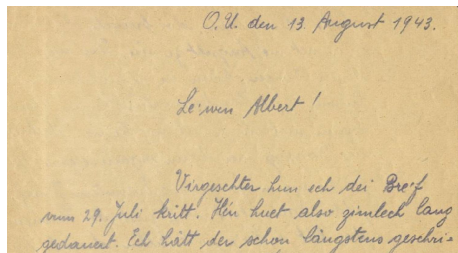 O.U. den 13. August 1943.
Le:wen Albert!
Virgeschter hun ech dei Bre:f
vum 29. Juli kritt. Hien huet also zimlech lang
gedauert. Ech hätt der schon längstens geschri-